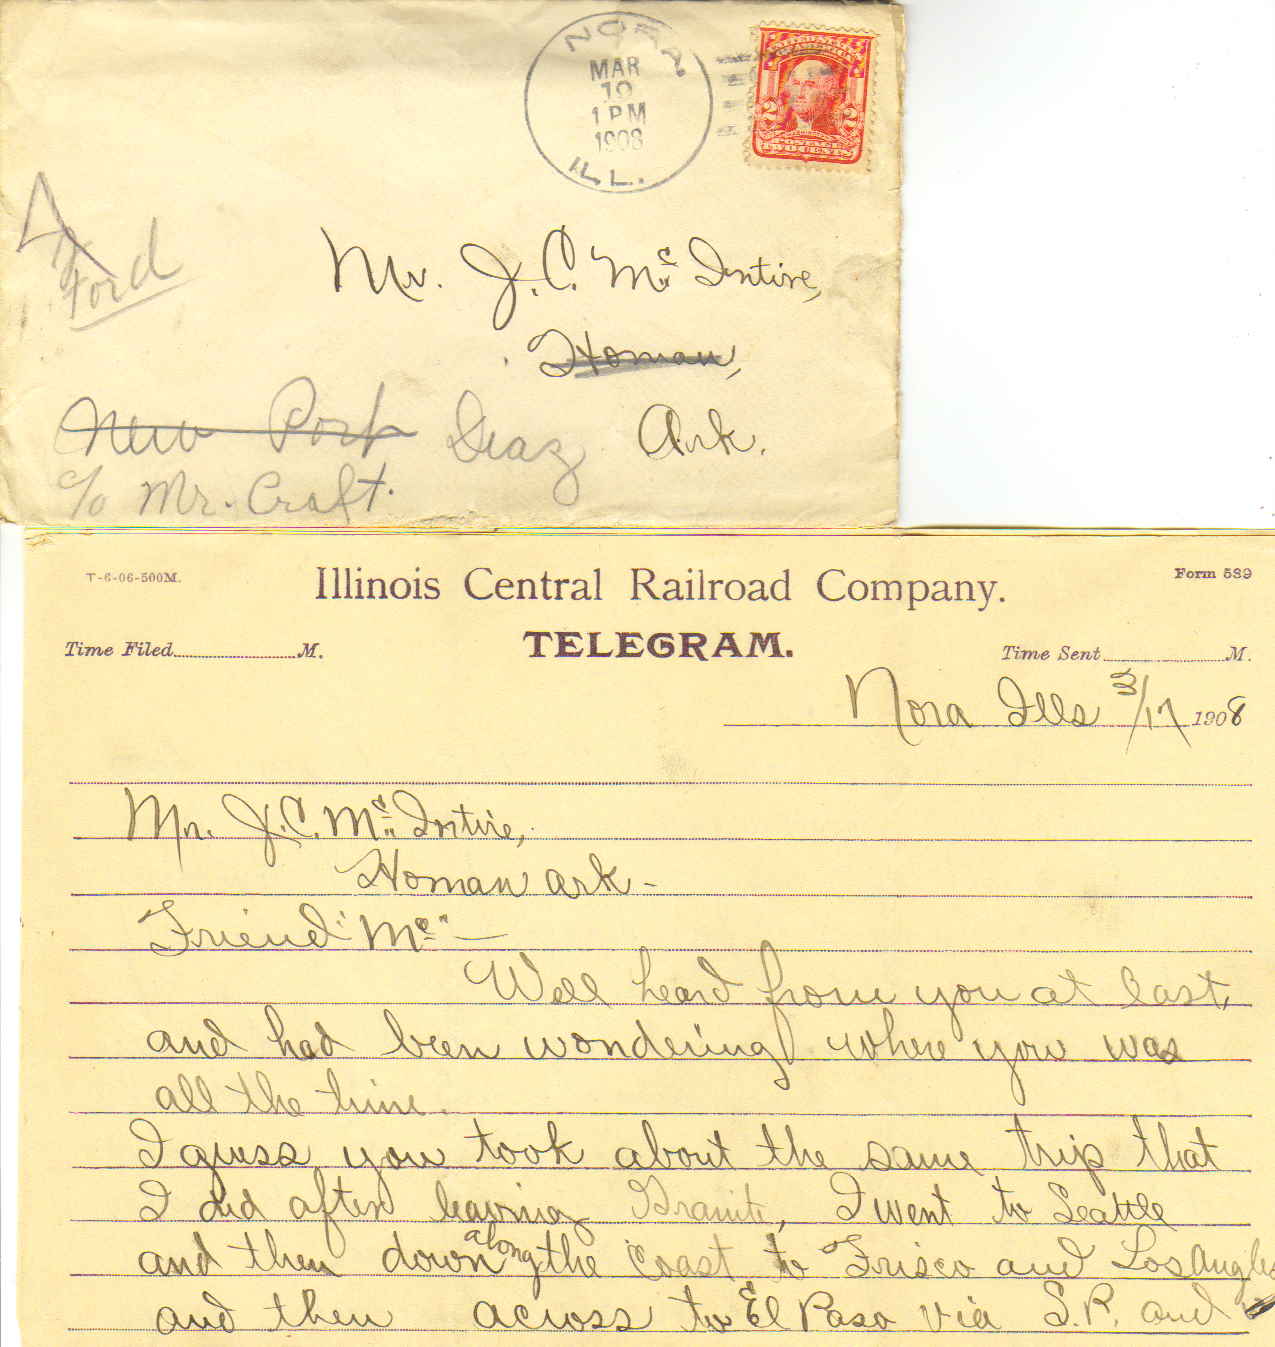 NORA.
MAR
10
1 PM
1908
ILL.
UNITED STATES
OF AMERICA
2 2
POSTAGE
TWO CENTS
Ford
Mr. J. C. Mc Intire,
Homan,
New Port Diaz Ark.
c/o Mr. Craft.
T-6-06-500M.
Illinois Central Railroad Company.
Form 539
Time Filed M.
TELEGRAM.
Time Sent M.
Nora Ills 3/17 1908
Mr. J. C. Mc Intire,
Homan Ark -
Friend "Mc" —
Well heard from you at last,
and had been wondering where you was
all the time.
I guess you took about the same trip that
I did after leaving Granite, I went to Seattle
and then down along the Coast to Frisco and Los Angles
and then across to El Paso via S.P. and